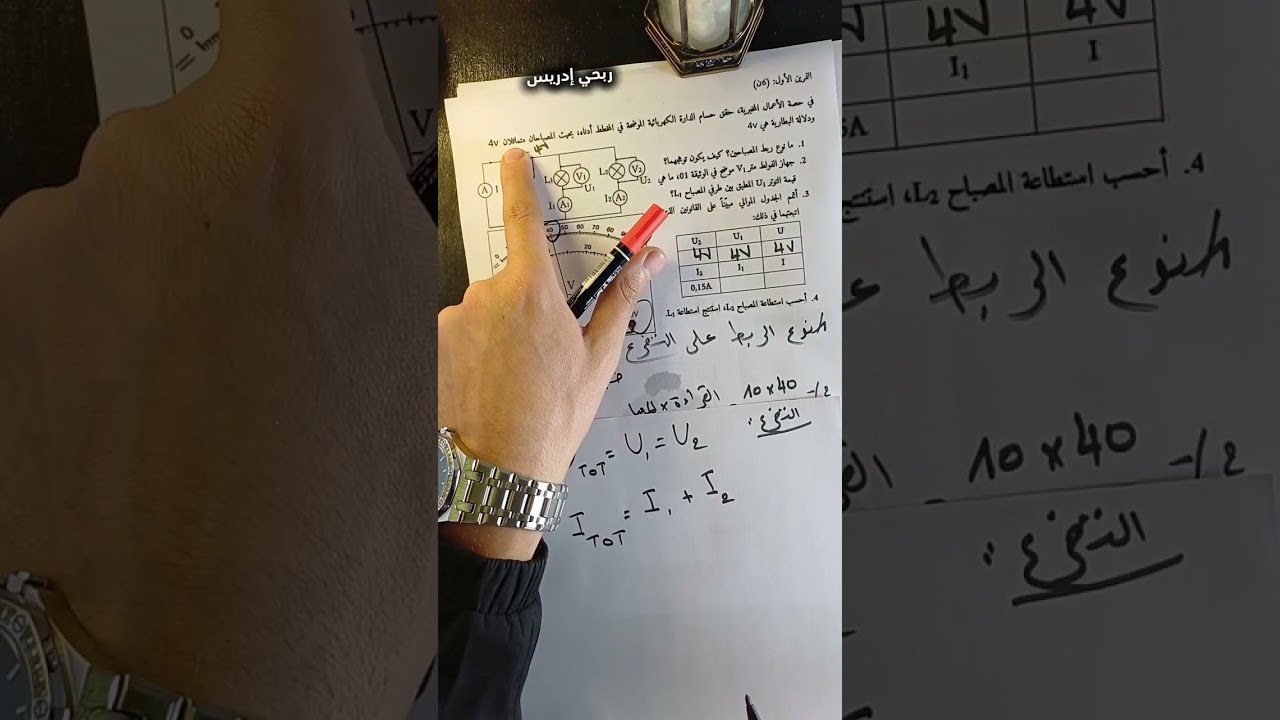 ربحي إدريس
التمرين الأول: (6ن)
في حصة الأعمال المخبرية، حقق حسام الدارة الكهربائية الموضحة في المخطط أدناه، بحيث المصباحان متماثلان 4v
ودلالة البطارية هي 4v
4v
1. ما نوع ربط المصباحين؟ كيف يكون توهجهما؟
2. جهاز الفولط متر V₁ موضح في الوثيقة 01، ما هي
قيمة التوتر U₁ المطبق بين طرفي المصباح L₁؟
3. أتمم الجدول الموالي مبيّناً على القوانين
اتبعتها في ذلك:
A I L₁ V₁ U₁ L₂ V₂ U₂
I₁ A₁ I₂ A₂
U₂ U₁ U
4V 4V 4V
I₂ I₁ I
0,15A
30 40 50 60 70 80 90
20
V
4. أحسب استطاعة المصباح L₂، استنتج استطاعة L₁.
1/ نوع الربط على التفرع
2/- 10 x 40 القراءة x
التفرع:
TOT = U₁ = U₂
I TOT = I₁ + I₂
4V 4V
I₁ I
5A
4. أحسب استطاعة المصباح L₂، استنتج
نوع الربط
2/- 10 x 40
التفرع: